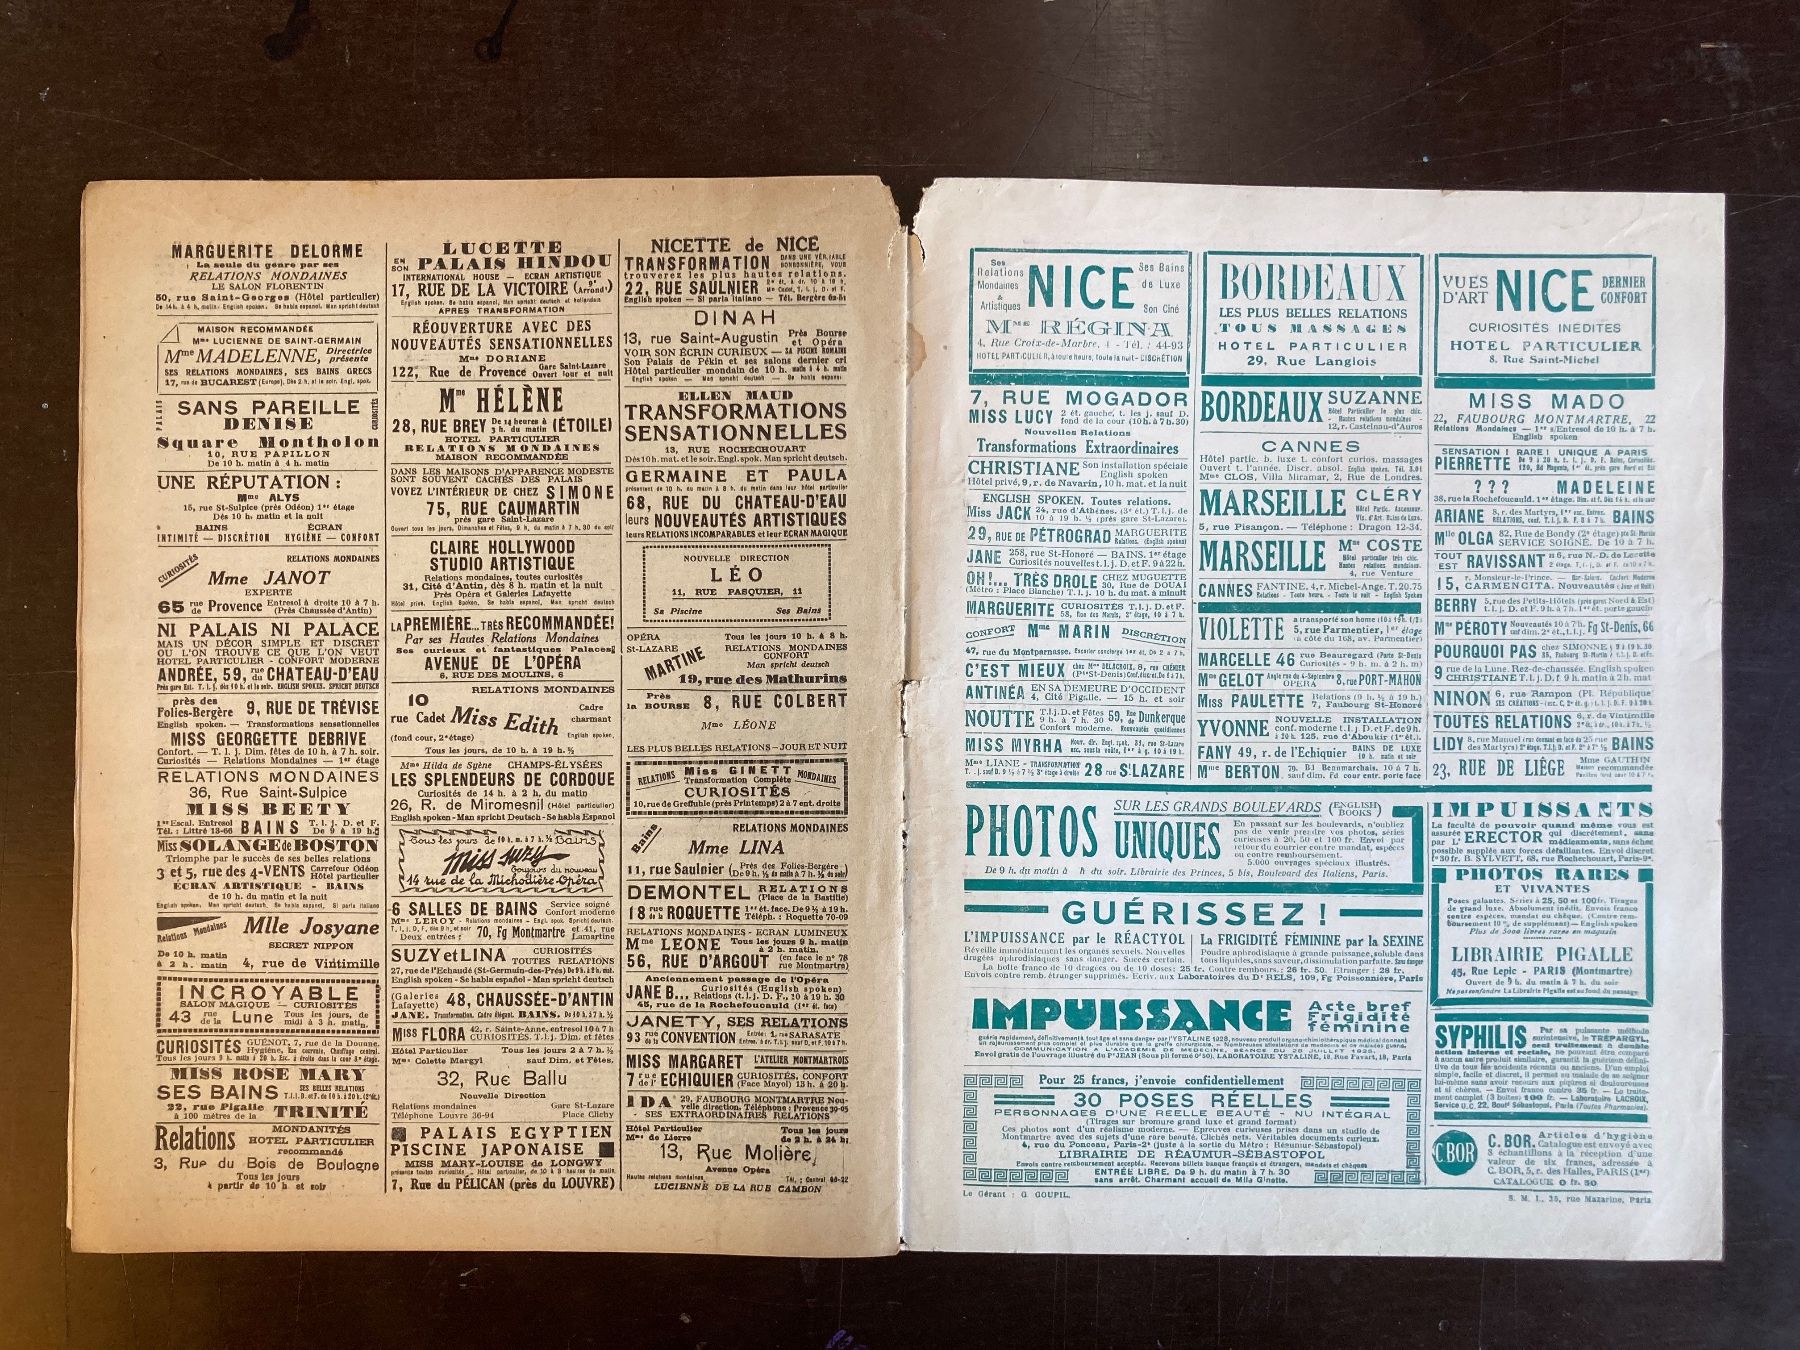 MARGUERITE DELORME
La seule du genre par ses
RELATIONS MONDAINES
LE SALON FLORENTIN
50, rue Saint-Georges (Hôtel particulier)
MAISON RECOMMANDÉE
Mme LUCIENNE DE SAINT-GERMAIN
Mme MADELENNE, Directrice présente
SES RELATIONS MONDAINES, SES BAINS GRECS
17, rue de BUCAREST (Europe). Dès 2 h. et le soir. Engl. spok.
PALAIS SANS PAREILLE CURIOSITÉS
DENISE
Square Montholon
10, RUE PAPILLON
De 10 h. matin à 4 h. matin
UNE RÉPUTATION :
Mme ALYS
15, rue St-Sulpice (près Odéon) 1er étage
Dès 10 h. matin et la nuit
BAINS ÉCRAN
INTIMITÉ — DISCRÉTION HYGIÈNE — CONFORT
CURIOSITÉS RELATIONS MONDAINES
Mme JANOT
EXPERTE
65 rue de Provence Entresol à droite 10 à 7 h.
(Près Chaussée d'Antin)
NI PALAIS NI PALACE
MAIS UN DÉCOR SIMPLE ET DISCRET
OU L'ON TROUVE CE QUE L'ON VEUT
HOTEL PARTICULIER - CONFORT MODERNE
ANDRÉE, 59, rue du CHATEAU-D'EAU
près des Folies-Bergère 9, RUE DE TRÉVISE
English spoken. — Transformations sensationnelles
MISS GEORGETTE DEBRIVE
Confort. — T. l. j. Dim. fêtes de 10 h. à 7 h. soir.
Curiosités — Relations Mondaines — 1er étage
RELATIONS MONDAINES
36, Rue Saint-Sulpice
MISS BEETY
1er Escal. Entresol BAINS T. l. j. D. et F.
Tél. : Littré 13-66 De 9 à 19 h.
Miss SOLANGE de BOSTON
Triomphe par le succès de ses belles relations
3 et 5, rue des 4-VENTS Carrefour Odéon Hôtel particulier
ÉCRAN ARTISTIQUE - BAINS
de 10 h. du matin et la nuit
Relations Mondaines Mlle Josyane
SECRET NIPPON
De 10 h. matin à 2 h. matin 4, rue de Vintimille
INCROYABLE
SALON MAGIQUE — CURIOSITÉS
43 rue de la Lune Tous les jours, de midi à 3 h. matin
CURIOSITÉS GUÉNOT, 7, rue de la Douane.
MISS ROSE MARY
SES BAINS SES BELLES RELATIONS
22, rue Pigalle TRINITÉ
à 100 mètres de la
Relations MONDANITÉS
HOTEL PARTICULIER
recommandé
3, Rue du Bois de Boulogne
Tous les jours
à partir de 10 h. et soir
LUCETTE
EN SON PALAIS HINDOU
INTERNATIONAL HOUSE — ECRAN ARTISTIQUE
17, RUE DE LA VICTOIRE (9e Arrondt)
English spoken. Se habla espanol. Man spricht deutsch et hollandsen
APRES TRANSFORMATION
RÉOUVERTURE AVEC DES
NOUVEAUTÉS SENSATIONNELLES
Mme DORIANE
122, Rue de Provence Gare Saint-Lazare Ouvert jour et nuit
Mme HÉLÈNE
28, RUE BREY De 14 heures à 3 h. du matin (ÉTOILE)
HOTEL PARTICULIER
RELATIONS MONDAINES
MAISON RECOMMANDÉE
DANS LES MAISONS D'APPARENCE MODESTE
SONT SOUVENT CACHÉS DES PALAIS
VOYEZ L'INTÉRIEUR DE CHEZ SIMONE
75, RUE CAUMARTIN
près gare Saint-Lazare
Ouvert tous les jours, Dimanches et Fêtes, 9 h. du matin à 7 h. 30 du soir
CLAIRE HOLLYWOOD
STUDIO ARTISTIQUE
Relations mondaines, toutes curiosités
31, Cité d'Antin, dès 8 h. matin et la nuit
Près Opéra et Galeries Lafayette
Hôtel prive. English Spoken. Se habla espanol. Man spricht deutsch
LA PREMIÈRE... TRÈS RECOMMANDÉE!
Par ses Hautes Relations Mondaines
Ses curieux et fantastiques Palaces
AVENUE DE L'OPÉRA
6, RUE DES MOULINS, 6
10 RELATIONS MONDAINES
rue Cadet Miss Edith Cadre charmant
(fond cour, 2e étage) English spoken.
Tous les jours, de 10 h. à 19 h. ½
Mme Hilda de Sgène CHAMPS-ÉLYSÉES
LES SPLENDEURS DE CORDOUE
Curiosités de 14 h. à 2 h. du matin
26, R. de Miromesnil (Hôtel particulier)
English spoken - Man spricht Deutsch - Se habla Espanol
Tous les jours de 10 h. m. à 7 h. ½ Bains
Miss Suzy
Toujours du nouveau
14 rue de la Michodière-Opéra
6 SALLES DE BAINS Service soigné Confort moderne
Mme LEROY - Relations mondaines - Engl. spok. Spricht deutsch.
Deux entrées : 70, Fg Montmartre et 41, rue Lamartine
SUZY et LINA CURIOSITÉS TOUTES RELATIONS
27, rue de l'Echaudé (St-Germain-des-Prés) De 9 h. à 19 h. ½
English spoken - Se habla español - Man spricht deutsch
(Galeries Lafayette) 48, CHAUSSÉE-D'ANTIN
JANE. Transformation. Cadre élégant. BAINS. De 10 h. à 7 h. ½
MISS FLORA 42, r. Sainte-Anne, entresol 10 à 7 h
CURIOSITÉS. T. l. j. Dim. et fêtes
Hôtel Particulier Tous les jours 2 à 7 h. ½
Mme Colette Margyl sauf Dim. et Fêtes.
32, Rue Ballu
Nouvelle Direction
Relations mondaines Gare St-Lazare
Téléphone Louvre 36-94 Place Clichy
PALAIS EGYPTIEN
PISCINE JAPONAISE
MISS MARY-LOUISE de LONGWY
7, Rue du PÉLICAN (près du LOUVRE)
NICETTE de NICE
TRANSFORMATION DANS UNE VÉRITABLE BONBONNIÈRE, VOUS
trouverez les plus hautes relations.
22, RUE SAULNIER
English spoken — Si parla italiano — Tél. Bergère 62-51
DINAH
13, rue Saint-Augustin Près Bourse et Opéra
VOIR SON ÉCRIN CURIEUX — SA PISCINE ROMAINE
Son Palais de Pékin et ses salons dernier cri
Hôtel particulier mondain de 10 h. matin à 4 h. matin
English spoken — Man spricht deutsch — Se habla espanol
ELLEN MAUD
TRANSFORMATIONS
SENSATIONNELLES
13, RUE ROCHECHOUART
Dès 10 h. mat. et le soir. Engl. spok. Man spricht deutsch.
GERMAINE ET PAULA
présentent de 10 h. du matin à 8 h. du matin dans leur hôtel particulier
68, RUE DU CHATEAU-D'EAU
leurs NOUVEAUTÉS ARTISTIQUES
leurs RELATIONS INCOMPARABLES et leur ECRAN MAGIQUE
NOUVELLE DIRECTION
LÉO
11, RUE PASQUIER, 11
Sa Piscine Ses Bains
OPÉRA Tous les jours 10 h. à 8 h.
St-LAZARE RELATIONS MONDAINES
CONFORT
MARTINE Man spricht deutsch
19, rue des Mathurins
Près la BOURSE 8, RUE COLBERT
Mme LÉONE
LES PLUS BELLES RELATIONS - JOUR ET NUIT
RELATIONS Miss GINETT MONDAINES
Transformation Complète
CURIOSITÉS
10, rue de Greffulhe (près Printemps) 2 à 7 ent. droite
Bains RELATIONS MONDAINES
Mme LINA
11, rue Saulnier (Près des Folies-Bergère)
DEMONTEL RELATIONS (Place de la Bastille)
18 rue de la ROQUETTE 1er ét. face. De 9 ½ à 19 h.
Téléph. : Roquette 70-09
RELATIONS MONDAINES - ECRAN LUMINEUX
Mme LEONE Tous les jours 9 h. matin à 2 h. matin.
56, RUE D'ARGOUT (en face le n° 78 rue Montmartre)
Anciennement passage de l'Opéra
JANE B... Curiosités (English spoken)
Relations (t. l. j. D. F., 10 à 19 h. 30
45, rue de la Rochefoucauld (1er ét. face)
JANETY, SES RELATIONS
93 rue de la CONVENTION Entrée: 1, rue SARASATE
MISS MARGARET L'ATELIER MONTMARTROIS
7 rue de l' ECHIQUIER CURIOSITÉS, CONFORT (Face Mayol) 13 h. à 20 h.
IDA 29, FAUBOURG MONTMARTRE Nouvelle direction. Téléphone : Provence 30-05
- SES EXTRAORDINAIRES RELATIONS -
Hôtel Particulier Tous les jours
Mme de Lierre de 2 h. à 24 h.
13, Rue Molière
Avenue Opéra
Hautes relations mondaines Tél. : Central 66-22
LUCIENNE DE LA RUE CAMBON
Ses Relations Mondaines & Artistiques NICE Ses Bains de Luxe Son Ciné
Mme RÉGINA
4, Rue Croix-de-Marbre, 4 - Tél. : 44-93
HOTEL PARTICULIER, à toute heure, toute la nuit - DISCRÉTION
BORDEAUX
LES PLUS BELLES RELATIONS
TOUS MASSAGES
HOTEL PARTICULIER
29, Rue Langlois
VUES D'ART NICE DERNIER CONFORT
CURIOSITÉS INÉDITES
HOTEL PARTICULIER
8, Rue Saint-Michel
7, RUE MOGADOR
MISS LUCY 2 ét. gauche, t. les j. sauf D. fond de la cour (10 h. à 7 h. 30)
Nouvelles Relations
Transformations Extraordinaires
CHRISTIANE Son installation spéciale
English spoken
Hôtel privé, 9, r. de Navarin, 10 h. mat. et la nuit
ENGLISH SPOKEN. Toutes relations.
Miss JACK 24, rue d'Athènes. (3e ét.) T. l. j. de 10 à 19 h. ½ (près gare St-Lazare).
29, RUE de PÉTROGRAD MARGUERITE
Relations. English spoken
JANE 258, rue St-Honoré — BAINS. 1er étage
Curiosités nouvelles t. l. j. D. et F. 9 à 22 h.
OH!... TRÈS DROLE CHEZ MUGUETTE 30, Rue de DOUAI
(Métro : Place Blanche) T. l. j. 10 h. du mat. à minuit
MARGUERITE CURIOSITÉS T. l. j. D. et F.
CONFORT Mme MARIN DISCRÉTION
47, rue du Montparnasse. Escalier concierge 1er ét. De 2 à 7 h.
C'EST MIEUX chez Mme DELACROIX, 8, rue CHÉNIER
ANTINÉA EN SA DEMEURE D'OCCIDENT
4, Cité Pigalle. — 15 h. et soir
NOUTTE T. l. j. D. et Fêtes 9 h. à 7 h. 30 59, Rue de Dunkerque
Confort moderne. Nouveautés quotidiennes
MISS MYRHA
Mme LIANE - TRANSFORMATION 28 rue St-LAZARE
BORDEAUX SUZANNE
Hôtel Particulier le plus chic.
- Hautes relations mondaines -
12, r. Castelnau-d'Auros
CANNES
Hôtel partic. b. luxe t. confort curios. massages
Ouvert t. l'année. Discr. absol. English spoken. Tél. 3.01
Mme CLOS, Villa Miramar, 2, Rue de Londres.
MARSEILLE CLÉRY
Hôtel Partic. Ascenseur.
Vis. d'Art. Bains de Luxe.
5, rue Pisançon. — Téléphone : Dragon 12-34.
MARSEILLE Mme COSTE
Hôtel particulier très chic.
Hautes relations mondaines.
4, rue Venture
CANNES FANTINE, 4, r. Michel-Ange. T. 20.75
Relations — Toute heure. - Toute la nuit - English Spoken
VIOLETTE a transporté son home
5, rue Parmentier, 1er étage
(à côté du 168, av. Parmentier)
MARCELLE 46 rue Beauregard (Porte St-Denis)
Curiosités - 9 h. m. à 2 h. m)
Mme GELOT Angle rue du 4-Septembre OPÉRA 8, rue PORT-MAHON
Miss PAULETTE Relations (9 h. ½ à 19 h.)
7, Faubourg St-Honoré
YVONNE NOUVELLE INSTALLATION
confort moderne t. l. j. D. et F. de 9 h.
à 20 h. 125, rue d'Aboukir (1er ét.).
FANY 49, r. de l'Echiquier BAINS DE LUXE
Mme BERTON 79, Bd Beaumarchais, 10 h. à 7
sauf dim. Fd cour entr. porte face
MISS MADO
22, FAUBOURG MONTMARTRE, 22
Relations Mondaines — 1er s/Entresol de 10 h. à 7 h.
English spoken
SENSATION ! RARE ! UNIQUE A PARIS
PIERRETTE De 9 à 20 h. t. l. j. D. F. Bains, Curiosités.
120, Bd Magenta, 1er ét. près gare Nord et Est
??? MADELEINE
38, rue la Rochefoucauld. 1er étage.
ARIANE 8, r. des Martyrs, 1er esc. Entres. BAINS
Mlle OLGA 82, Rue de Bondy (2e étage) pte St-Martin
SERVICE SOIGNÉ. De 10 à 7 h.
TOUT EST RAVISSANT au 6, rue N.-D. de Lorette
15, r. Monsieur-le-Prince.
CARMENCITA. Nouveautés
BERRY 5, rue des Petits-Hôtels (près gare Nord & Est)
t. l. j. D. et F. 9 h. à 7 h. 1er ét. porte gauche
Mme PÉROTY Nouveautés 10 à 7 h. sauf dim. 2e ét., Fg St-Denis, 66
POURQUOI PAS chez SIMONNE
9 rue de la Lune. Rez-de-chaussée. English spoken
CHRISTIANE T. l. j. D. F. 9 h. matin à 2 h. mat
NINON 6, rue Rampon (Pl. République)
TOUTES RELATIONS 6, r. de Vintimille
LIDY 8, rue Manuel BAINS
23, RUE DE LIÈGE Mme GAUTHIN
Maison recommandée
PHOTOS UNIQUES SUR LES GRANDS BOULEVARDS (ENGLISH BOOKS)
En passant sur les boulevards, n'oubliez
pas de venir prendre vos photos, séries
curieuses à 20, 50 et 100 fr. Envoi par
retour du courrier contre mandat, espèces
ou contre remboursement.
5.000 ouvrages spéciaux illustrés.
De 9 h. du matin à h. du soir. Librairie des Princes, 5 bis, Boulevard des Italiens, Paris.
GUÉRISSEZ !
L'IMPUISSANCE par le RÉACTYOL
Réveille immédiatement les organes sexuels. Nouvelles
dragées aphrodisiaques sans danger. Succès certain.
La FRIGIDITÉ FÉMININE par la SEXINE
Poudre aphrodisiaque à grande puissance, soluble dans
tous liquides, sans saveur, dissimulation parfaite. Sans danger
La boîte franco de 10 dragées ou de 10 doses: 25 fr. Contre rembours. : 26 fr. 50. Etranger : 28 fr.
Envois contre remb. étranger supprimés. Ecriv. aux Laboratoires du Dr RELS, 109, Fg Poissonnière, Paris
IMPUISSANCE Acte bref
Frigidité
féminine
guérie rapidement, définitivement, tout âge et sans danger par l'YSTALINE 1928, nouveau produit organo-chimiothérapique médical donnant
COMMUNICATION A L'ACADÉMIE DE MÉDECINE, SÉANCE DU 28 JUILLET 1925.
Envoi gratis de l'ouvrage illustré du Pr JEAN (Sous pli fermé 0'50), LABORATOIRE YSTALINE, 18, Rue Favart, 18, Paris
Pour 25 francs, j'envoie confidentiellement
30 POSES RÉELLES
PERSONNAGES D'UNE RÉELLE BEAUTÉ - NU INTÉGRAL
(Tirages sur bromure grand luxe et grand format)
Ces photos sont d'un réalisme moderne. — Epreuves curieuses prises dans un studio de
Montmartre avec des sujets d'une rare beauté. Clichés nets. Véritables documents curieux.
4, rue du Ponceau, Paris-2e (juste à la sortie du Métro : Réaumur-Sébastopol)
LIBRAIRIE DE RÉAUMUR-SÉBASTOPOL
Envois contre remboursement acceptés. Recevons billets banque français et étrangers, mandats et chèques
ENTRÉE LIBRE. De 9 h. du matin à 7 h. 30
sans arrêt. Charmant accueil de Mlle Ginette.
IMPUISSANTS
La faculté de pouvoir quand même vous est
assurée par L' ERECTOR qui discrètement, sans
médicaments, sans échec
possible supplée aux forces défaillantes. Envoi discret
fo 30 fr. B. SYLVETT, 68, rue Rochechouart, Paris-9e.
PHOTOS RARES
ET VIVANTES
Poses galantes. Séries à 25, 50 et 100 fr. Tirages
de grand luxe. Absolument inédit. Envois franco
contre espèces, mandat ou chèque. (Contre rem-
boursement 10 % de supplément) — English spoken
Plus de 5000 livres rares en magasin
LIBRAIRIE PIGALLE
45, Rue Lepic - PARIS (Montmartre)
Ouvert de 9 h. du matin à 7 h. du soir
Ne pas confondre La Librairie Pigalle est au fond du passage
SYPHILIS Par sa puissante méthode
surintensive, le TRÉPARGYL,
seul traitement à double
action interne et rectale, ne pouvant être comparé
à aucun autre produit similaire, garantit la guérison défini-
tive de tous les accidents récents ou anciens. D'un emploi
simple, facile et discret, il permet au malade de se soigner
lui-même sans avoir recours aux piqûres si douloureuses
et si chères. — Envoi franco contre 35 fr. — Le traite-
ment complet (3 boîtes) 100 fr. — Laboratoire LACROIX,
Service U.C. 22, Bout Sébastopol, Paris (Toutes Pharmacies).
C.BOR C. BOR. Articles d'hygiène
Catalogue est envoyé avec
8 échantillons à la réception d'une
valeur de six francs, adressée à
C. BOR, 5, r. des Halles, PARIS (1er)
CATALOGUE 0 fr. 50
Le Gérant : G. GOUPIL.
S. M. I., 35, rue Mazarine, Paris